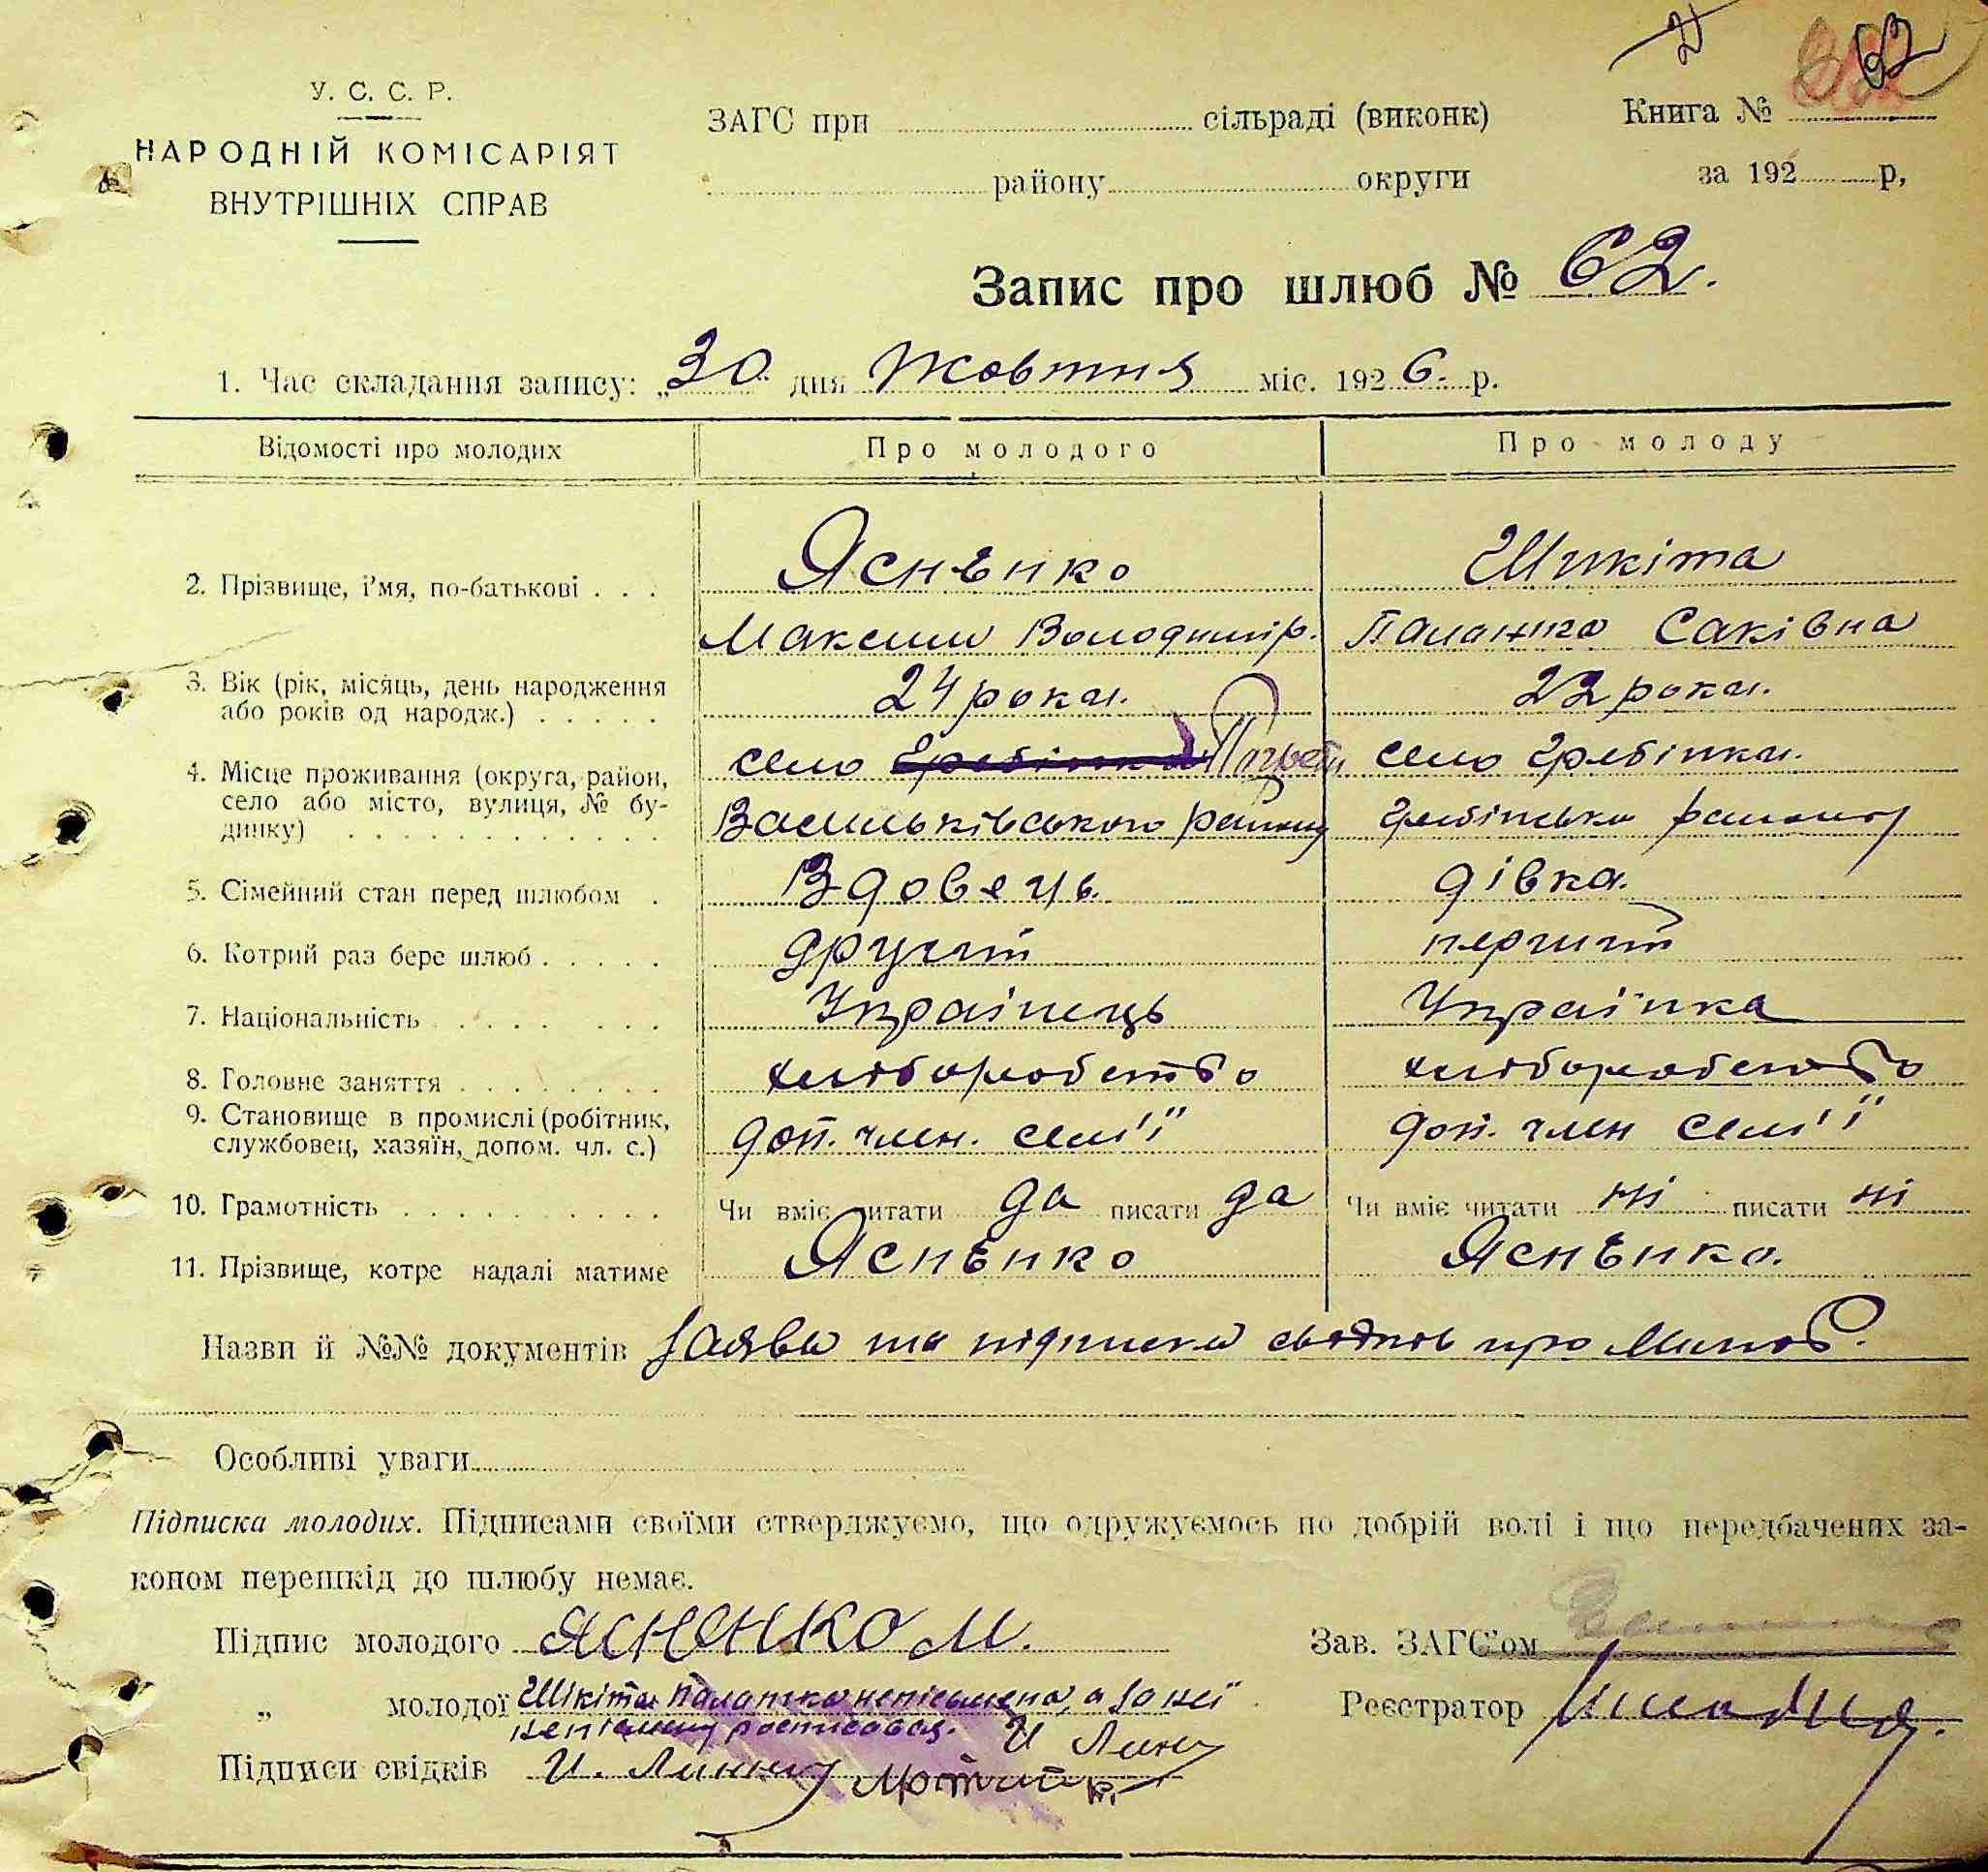 62
У. С. С. Р.
НАРОДНІЙ КОМІСАРІЯТ
ВНУТРІШНІХ СПРАВ
ЗАГС при сільраді (виконк)
району округи
Книга №
за 192 р,
Запис про шлюб № 62.
1. Час складання запису: „30" дня Жовтня міс. 1926. р.
Відомості про молодих Про молодого Про молоду
2. Прізвище, і'мя, по-батькові . . . Ясненко Шикіта
Максим Володимір. Паланка Саківна
3. Вік (рік, місяць, день народження
або років од народж.) . . . . . 24 роки. 22 роки.
4. Місце проживання (округа, район,
село або місто, вулиця, № бу-
динку) село Гребінка село Гребінки.
Васильківського району Гребінсько району
5. Сімейний стан перед шлюбом . Вдовець. дівка.
6. Котрий раз бере шлюб . . . . . другий перший
7. Національність Українець Українка
8. Головне заняття хліборобство хліборобство
9. Становище в промислі (робітник,
службовец, хазяїн, допом. чл. с.) доп. член. сем'ї доп. член сем'ї
10. Грамотність Чи вміє читати да писати да Чи вміє читати ні писати ні
11. Прізвище, котре надалі матиме Ясненко Ясненко.
Назви й №№ документів заява та підписка свідків про
Особливі уваги
Підписка молодих. Підписами своїми стверджуємо, що одружуємось по добрій волі і що передбачених за-
коном перешкід до шлюбу немає.
Підпис молодого ЯСНЕНКО М.
Зав. ЗАГС'ом
„ молодої Шикіта Паланка неписьмена, а за неї
неписьмену росписався.
Реєстратор
Підписи свідків И.